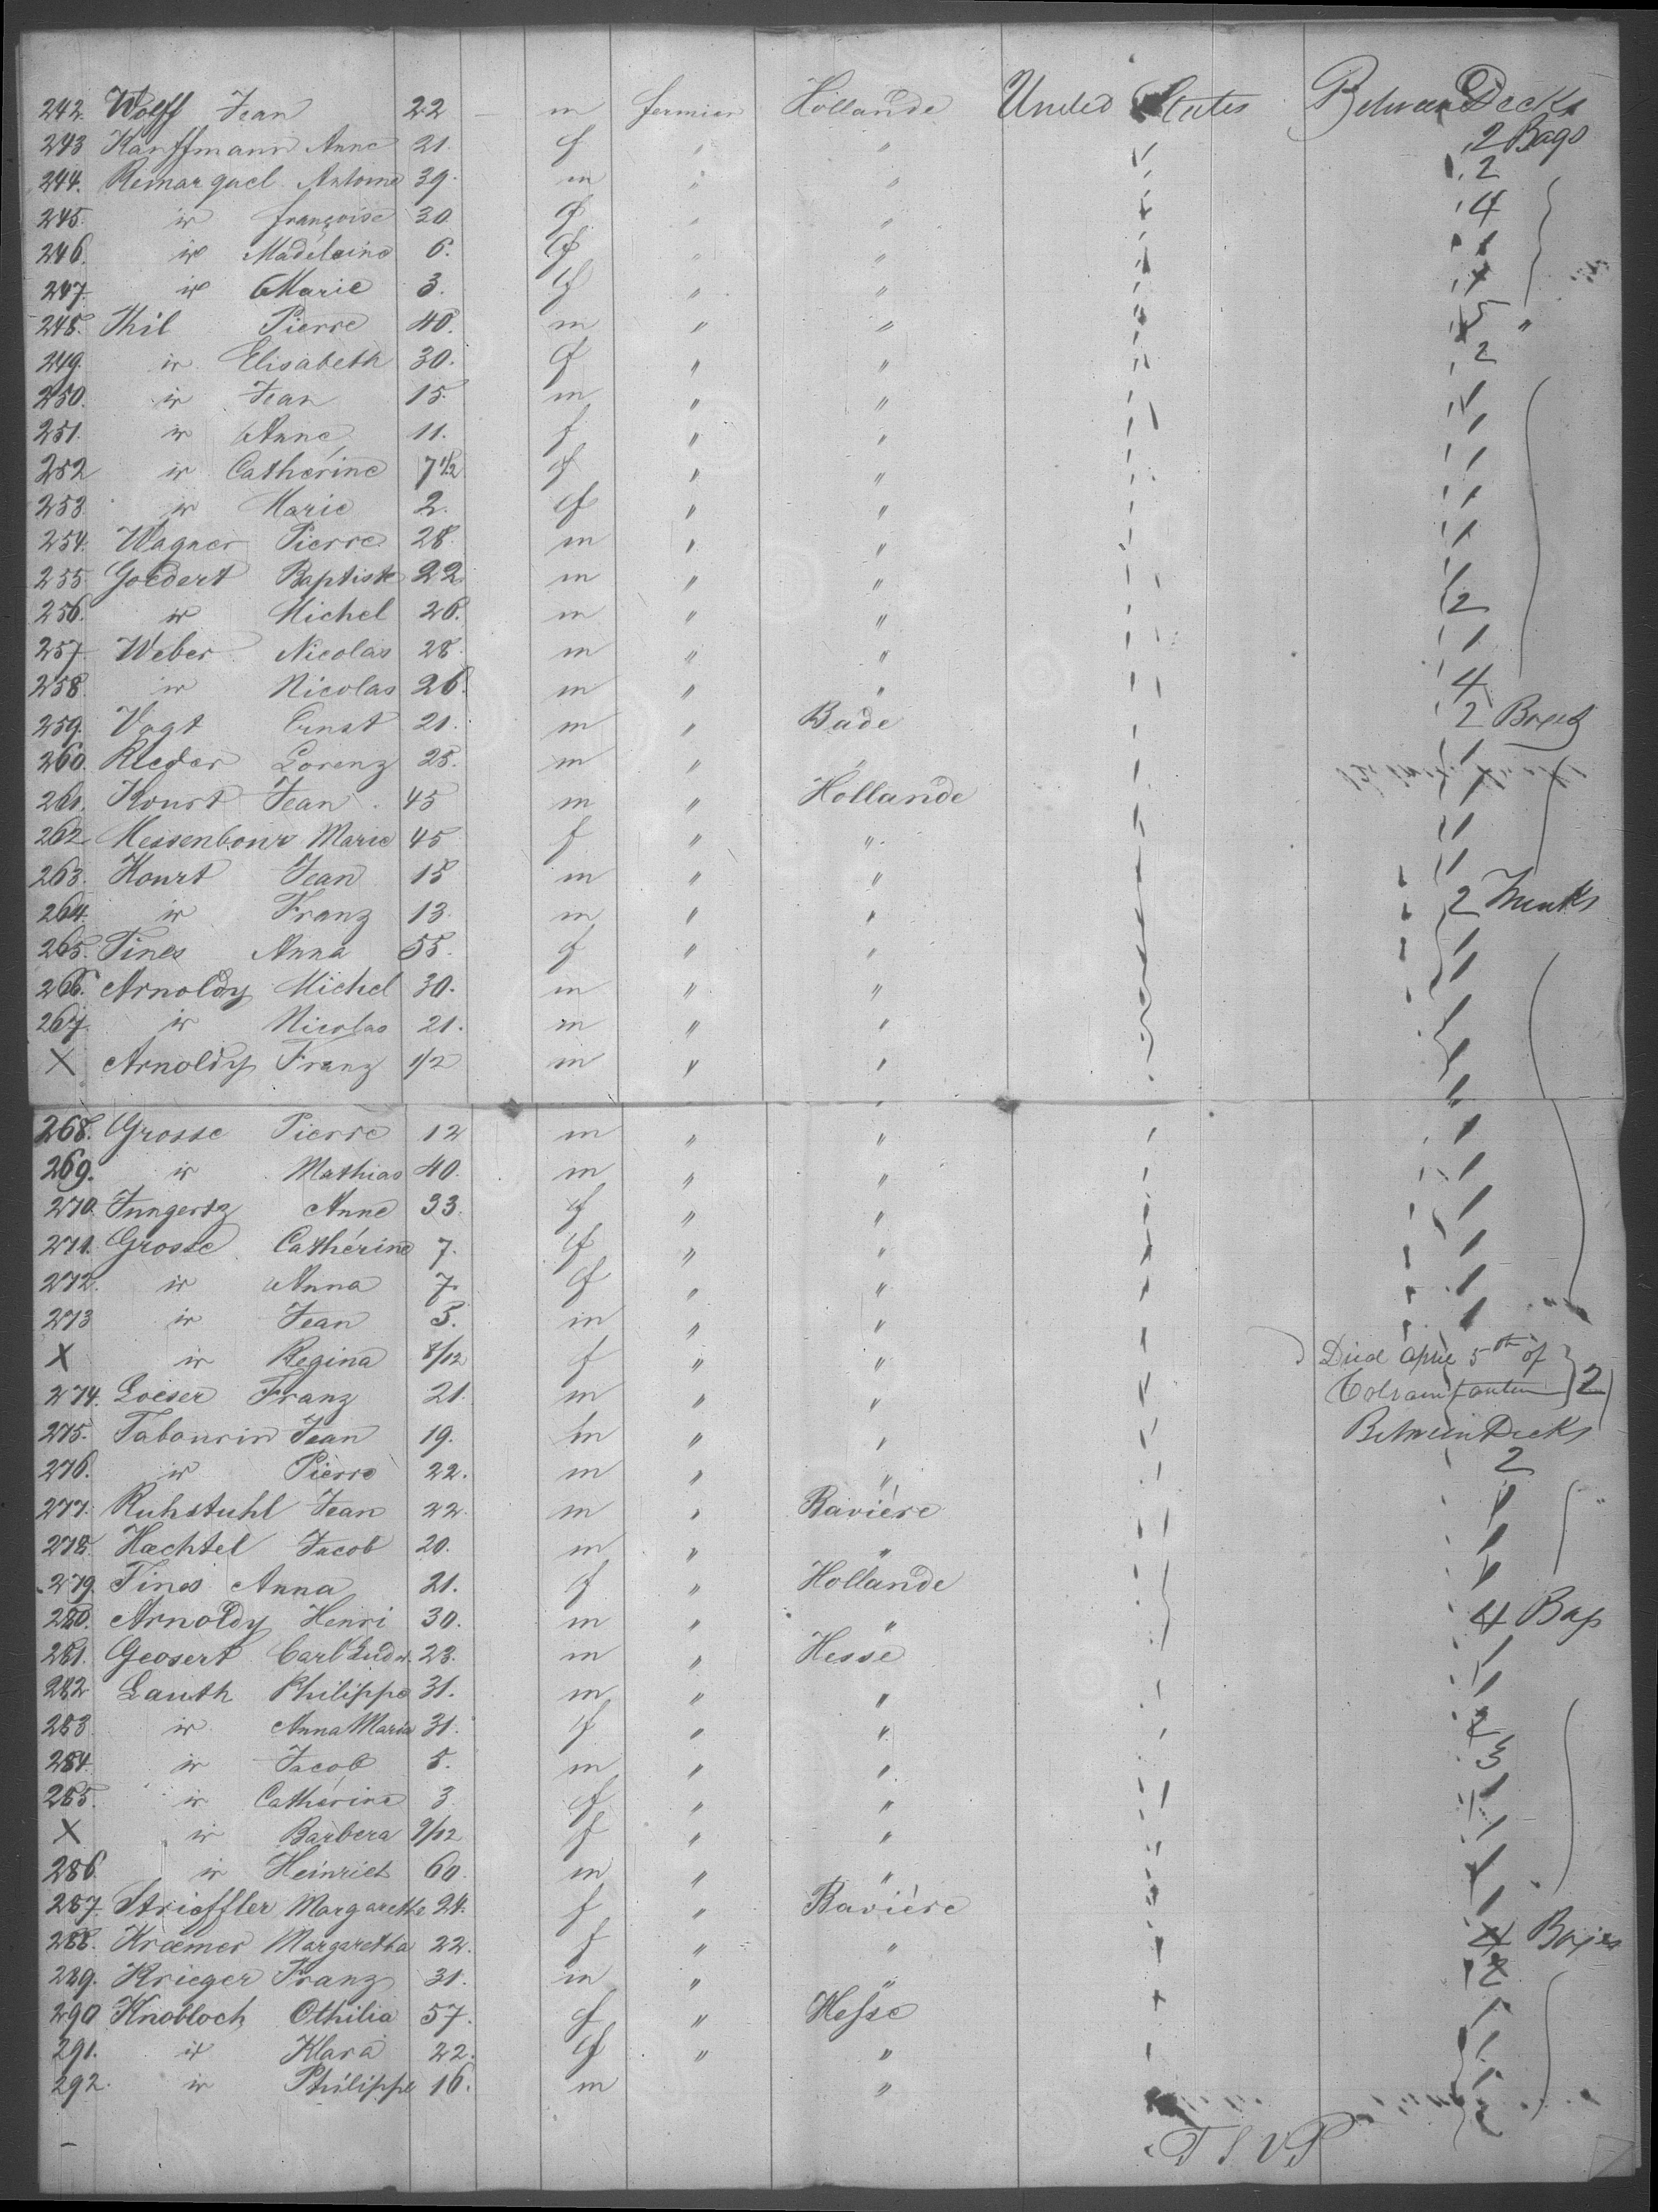 242. Wolff Jean 22 m fermier Hollande United States Between Decks
243 Kauffmann Anne 21. f " " " 2 Bags
244. Remarquel Antoine 39. m " " " 2
245. id françoise 30 f " " " 4
246. id Madélaine 6. f " " "
247. id Marie 3. f " " "
248. Thil Pierre 40. m " " "
249. id Elisabeth 30. f " " " 2
250. id Jean 15. m " " "
251. id Anne 11. f " " "
252 id Cathérine 7 1/2 f " " "
253. id Marie 2. f " " "
254. Wagner Pierre 28. m " " "
255 Goedert Baptiste 22 m " " "
256. id Michel 26. m " " " 2
257. Weber Nicolas 28. m " " "
258. id Nicolas 26. m " " " 4
259. Vogt Ernst 21. m " Bade " 2 Boxes
260. Rieder Lorenz 28. m " " "
261. Kourt Jean 45 m " Hollande "
262 Messenbour Marie 45 f " " "
263. Kourt Jean 15 m " " "
264. id Franz 13. m " " " 2 Trunks
265. Tines Anna 55. f " " "
266. Arnoldy Michel 30. m " " "
267. id Nicolas 21. m " " "
X Arnoldy Franz 1/2 m " " "
268. Grosse Pierre 12 m " " "
269. id Mathias 40. m " " "
270. Jungertz Anne 33. f " " "
271. Grosse Cathérine 7. f " " "
272. id Anna 7. f " " "
273 id Jean 5. m " " "
X id Regina 8/12 f " " " Died April 5th of
274. Loeser Franz 21. m " " " 2
275. Tabourin Jean 19. m " " " Between Decks
276. id Pierre 22. m " " " 2
277. Ruhstuhl Jean 22. m " Bavière "
278. Hæchtel Jacob 20. m " " "
279. Tines Anna 21. f " Hollande "
280. Arnoldy Henri 30. m " " " 4 Bags
281. Geosert Carl Ludw. 23. m " Hesse "
282 Lauth Philippe 31. m " " "
283. id Anna Maria 31. f " " " 2
284. id Jacob 5. m " " " 3
285. id Cathérine 3. f " " "
X id Barbera 9/12 f " " "
286. id Heinrich 60. m " " "
287. Strieffler Margarethe 24. f " Bavière "
288. Kræmer Margaretha 22. f " " " 4 Boxes
289. Krieger Franz 31. m " " " 2
290 Knobloch Othilia 57. f " Hesse "
291. id Klara 22. f " " "
292. id Philippe 16. m "
T S V P